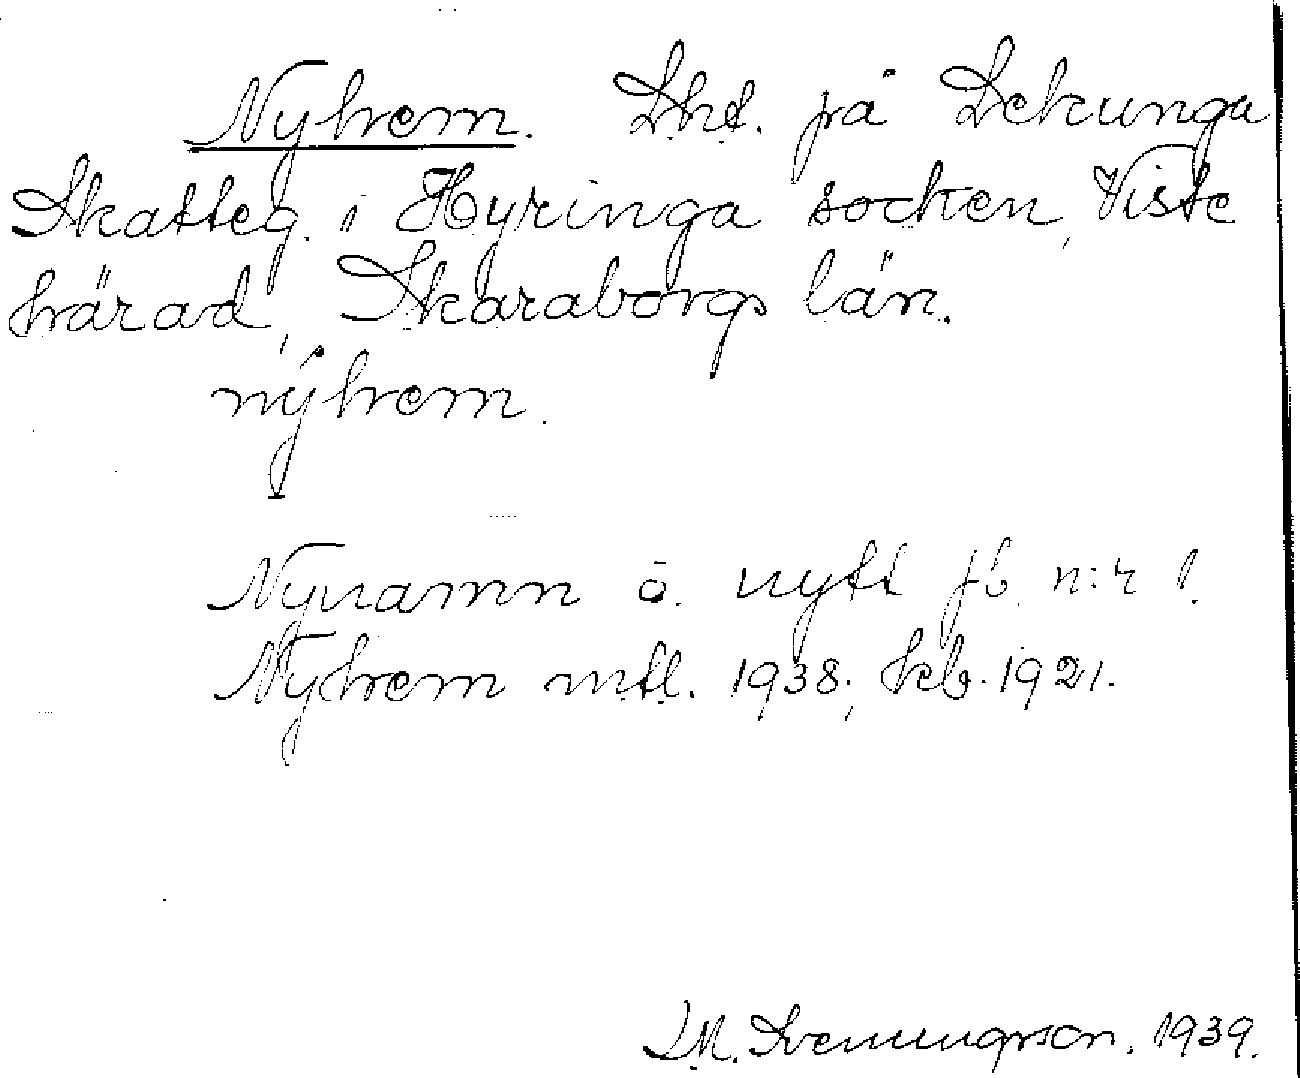 Nyhem. Lht. på Lekunga
Skatteg. i Hyringa socken, Viste
härad, Skaraborgs län.
nýhem.
Nynamn o. nytt jb. n:r 1.
Nyhem mtl. 1938; kb. 1921.
Svenungson. 1939.